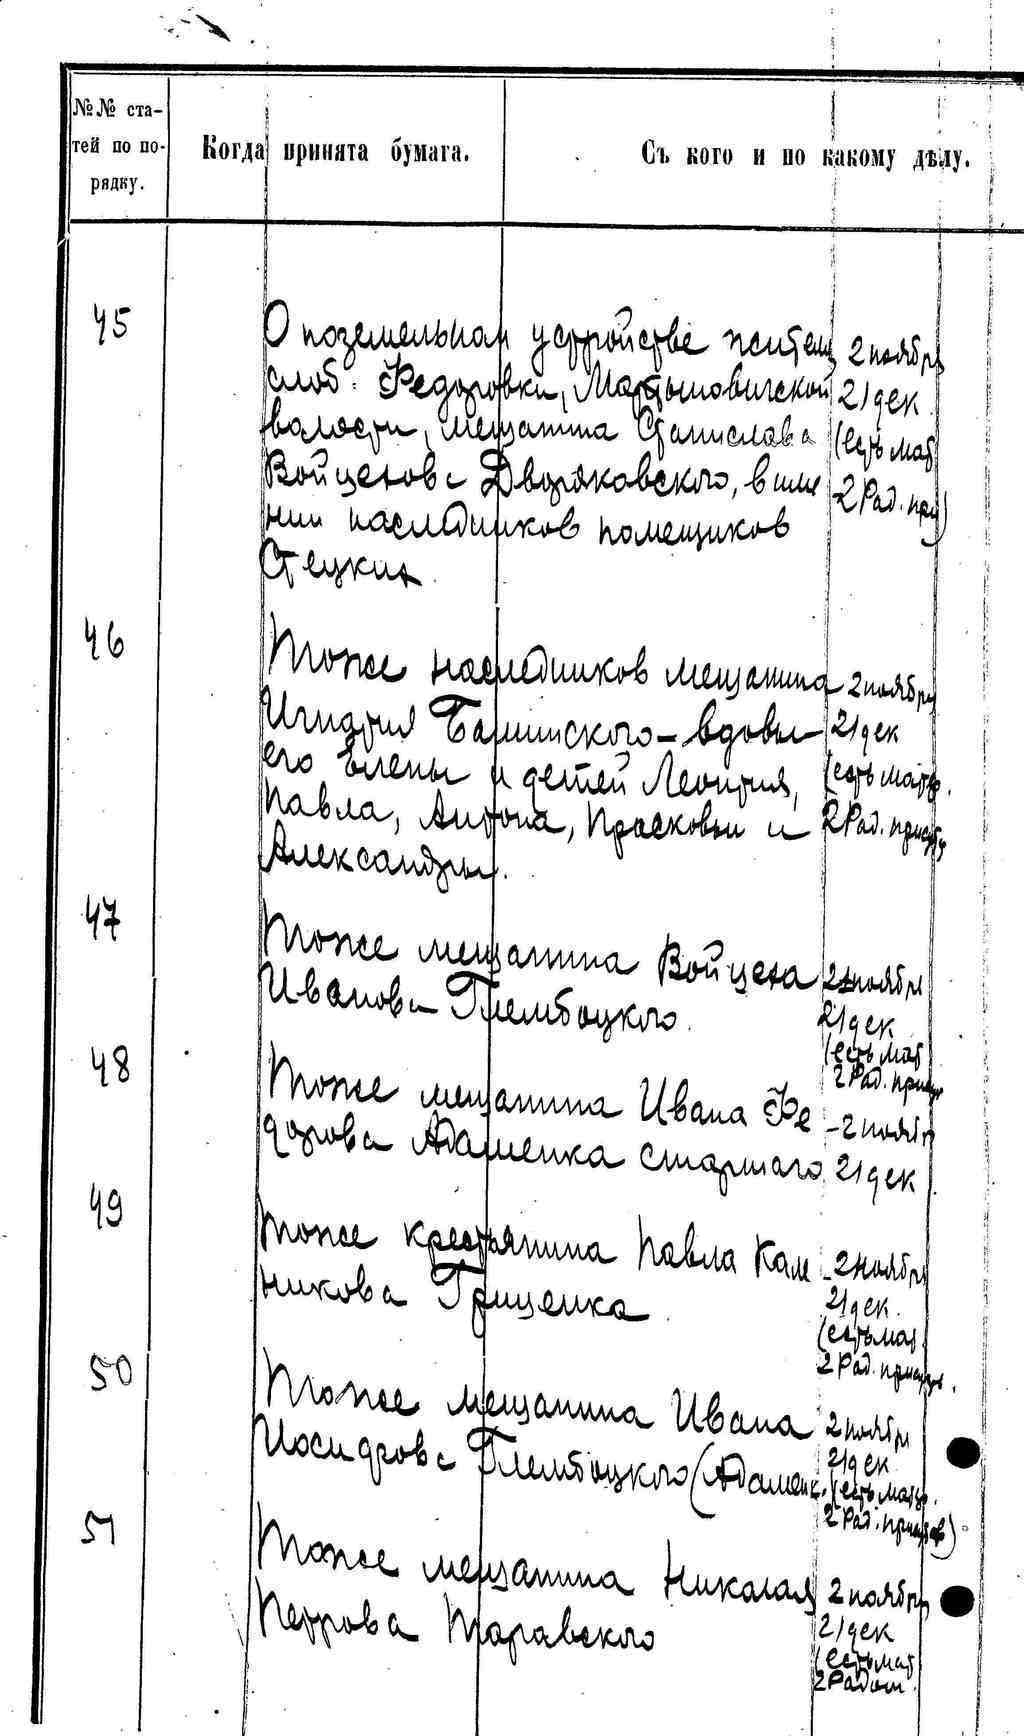 №№ ста-
тей по по-
рядку.
Когда принята бумага.
Съ кого и по какому дѣлу.
45
О поземельном устройстве жителя
слоб. Федоровки, Мартыновичской
волости, мещанина Станислава
Войцехова Дворяковского, в име
нии наследников помещиков
Стецких.
2 ноября
21 дек
(есть мат
2 Рад.
46
Тоже наследников мещанина
Игнатия Балинского - вдовы
его Елены и детей Леонтия,
Павла, Антона, Прасковьи и
Александры.
2 ноября
21 дек
(есть матер.
2 Рад.
47
Тоже мещанина Войцеха
Иванова Глембоцкого.
2 ноября
21 дек
(есть мат
2 Рад.
48
Тоже мещанина Ивана Фе
дорова Адаменка старшаго
- 2 ноябр
21 дек
49
Тоже крестьянина Павла Кале
никова Гриценка
- 2 ноября
21 дек.
(есть мат.
2 Рад.
50
Тоже мещанина Ивана
Иосифова Глембоцкого (Адаменк.
2 ноябр
21 дек
(есть матер.
2 Рад.
51
Тоже мещанина Николая
Петрова Таравского
2 ноября
21 дек
(есть мат
2 Радом.